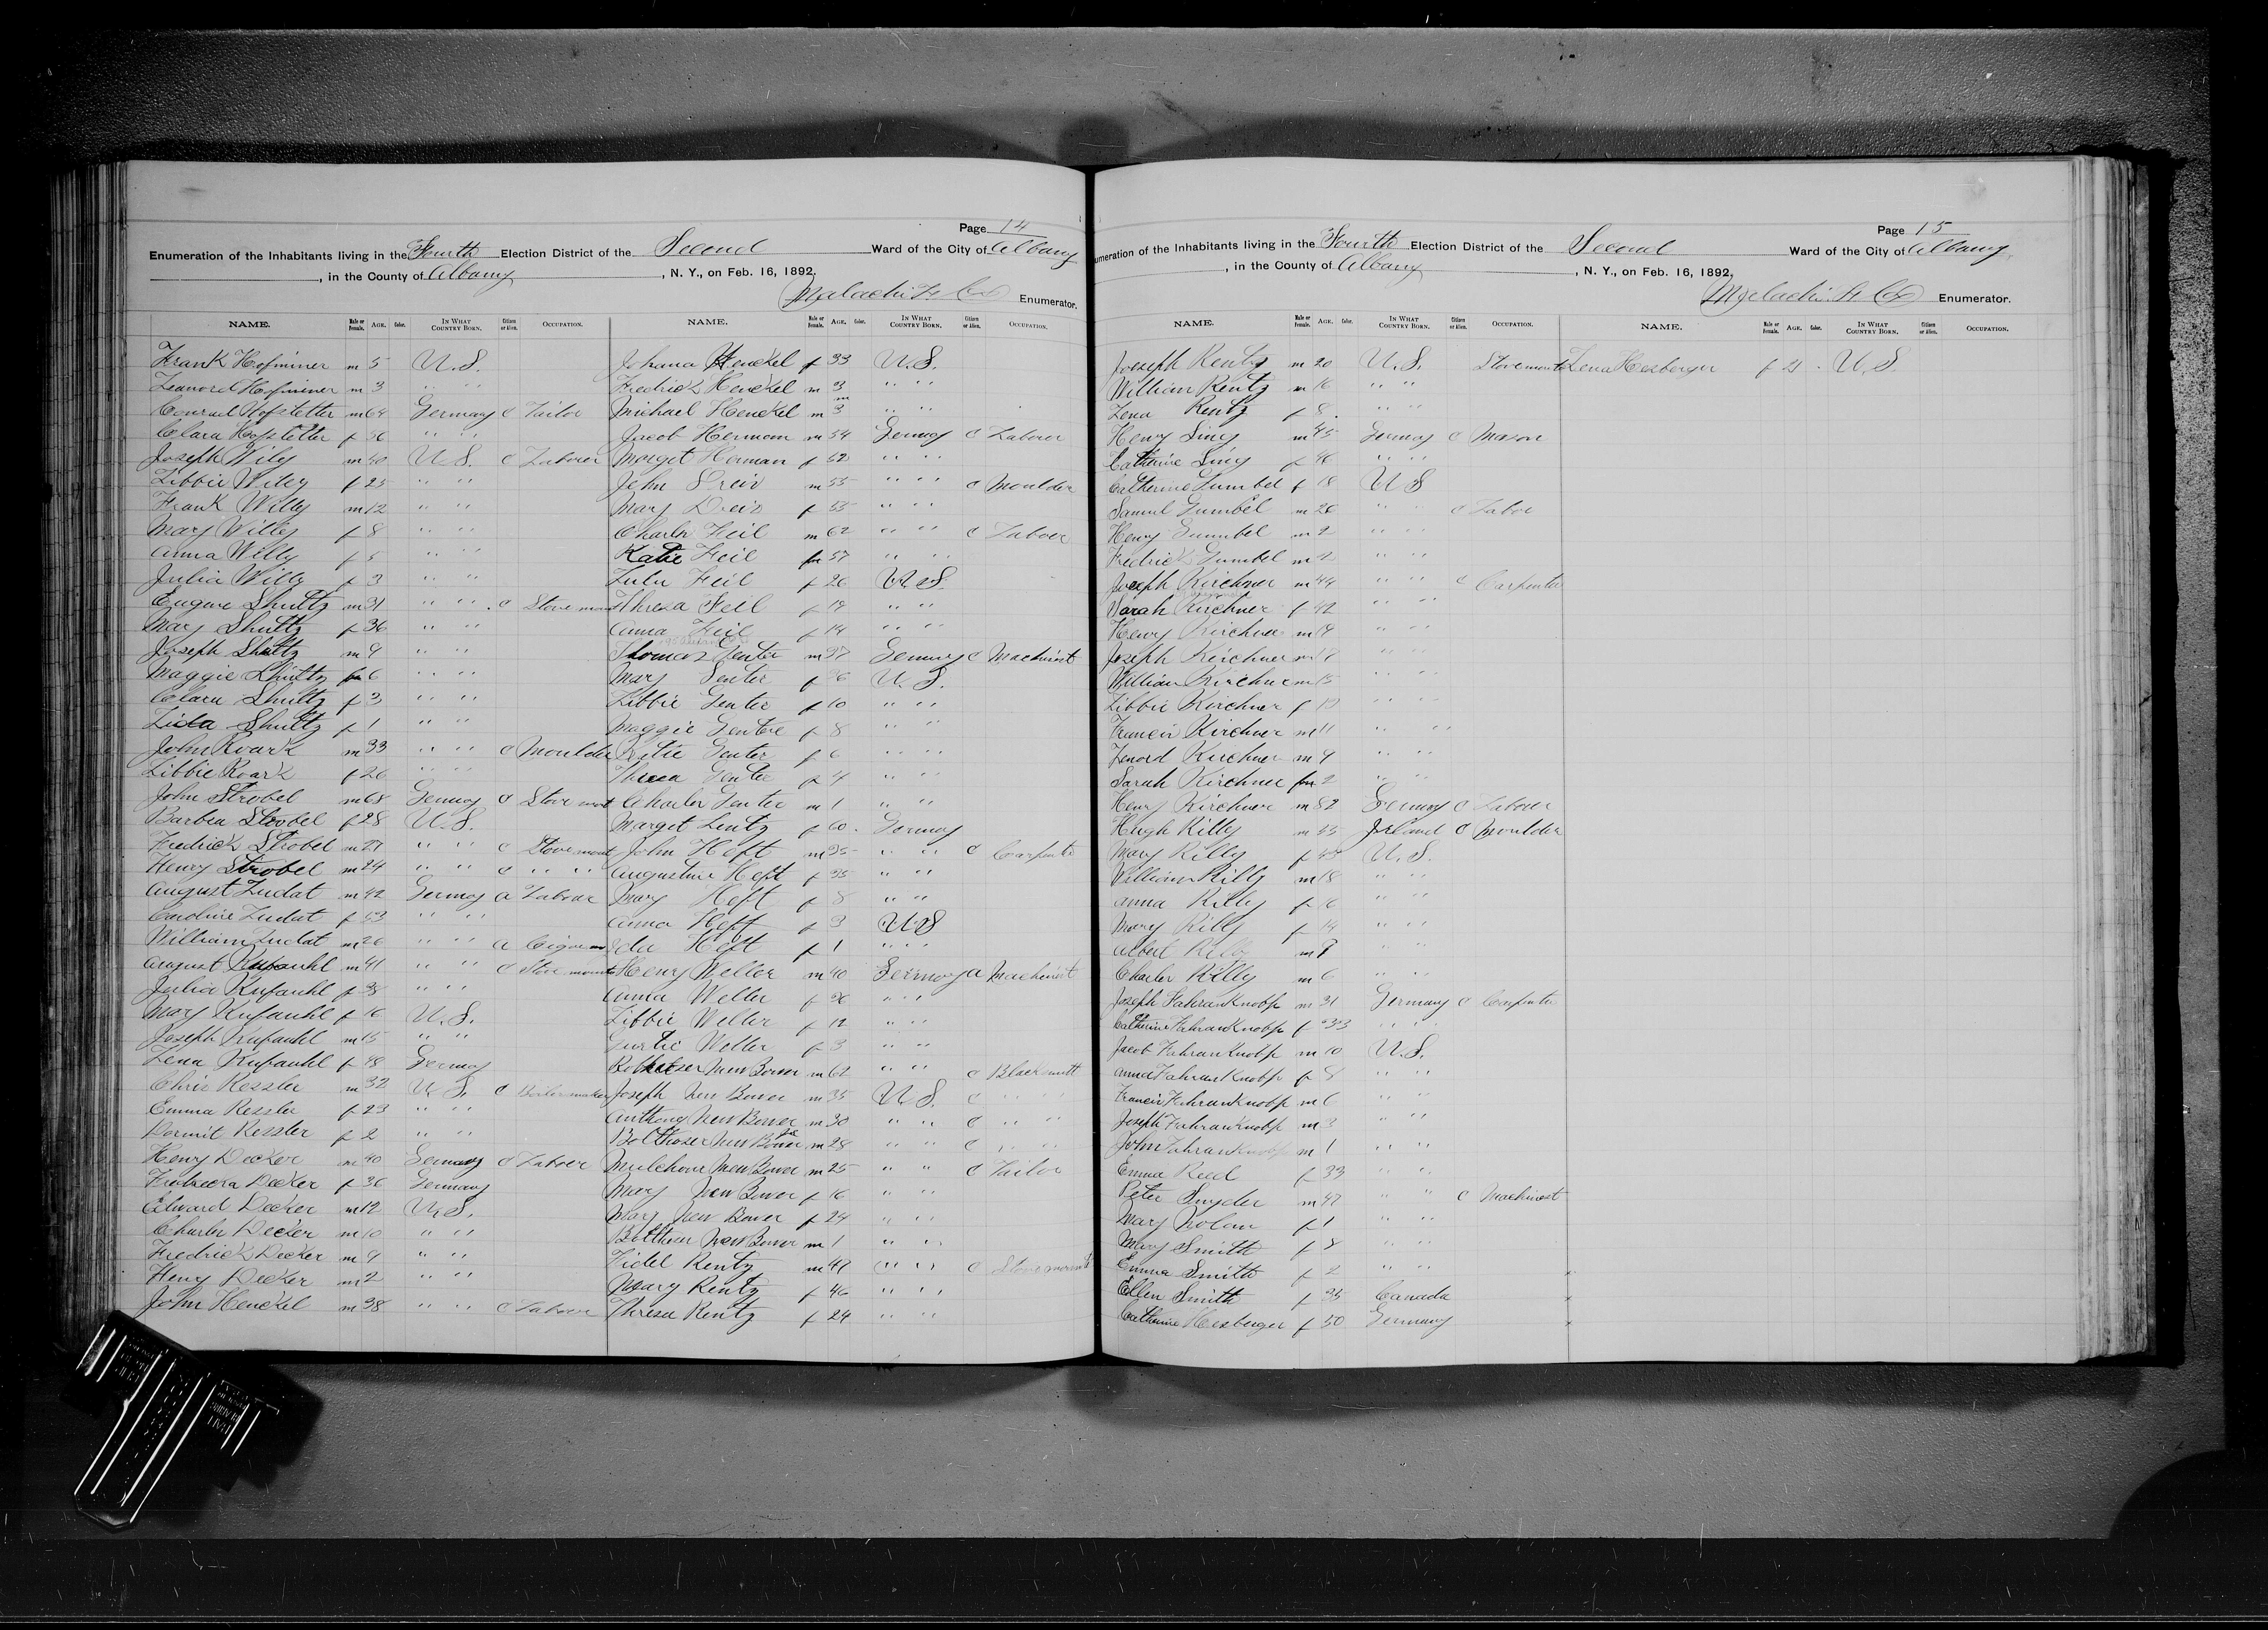 Page 14
Enumeration of the Inhabitants living in the Fourth Election District of the Second Ward of the City of Albany
, in the County of Albany , N. Y., on Feb. 16, 1892.
Malachi F. Cox Enumerator.
NAME. Male or Female. AGE. Color. IN WHAT COUNTRY BORN. Citizen or Alien. OCCUPATION.
Frank Hofminer m 5 U.S.
Leanord Hofminer m 3 " "
Conrad Hofstetter m 64 Germany C Tailor
Clara Hofstetter f 56 " "
Joseph Wily m 40 U.S. C Laborer
Libbie Wiley f 25 " "
Frank Willy m 12 " "
Mary Willy f 8 " "
Anna Willy f 5 " "
Julia Willy f 3 " "
Eugene Shultz m 31 " " C Stove mount
Mary Shultz f 36 " "
Joseph Shultz m 9 " "
Maggie Shultz f 6 " "
Clara Shultz f 3 " "
Lida Shultz f 1 " "
John Roark m 33 " " C Moulder
Libbie Roark f 26 " "
John Strobel m 68 Germay C Stove mont
Barbra Strobel f 28 U.S.
Fredrick Strobel m 27 " " C Stove mont
Henry Strobel m 24 " " C " "
August Zudat m 42 Germay a Labour
Caroline Zudat f 53 " "
William Zudat m 26 " " a Cigar m
August Kufauhl m 41 " " C Stove mount
Julia Kufauhl f 38 " "
Mary Kufauhl f 16 U.S.
Joseph Kufauhl m 15 " "
Lena Kufauhl f 48 Germay
Chris Kessler m 32 U.S. C Boiler maker
Emma Kessler f 23 " "
Dormit Kessler f 2 " "
Henry Decker m 40 Germany C Laborer
Decker f 36 Germany
Edward Decker m 12 U.S.
Charler Decker m 10 " "
Fredrick Decker m 9 " "
Henry Decker m 2 " "
John Henckel m 38 " " C Labourer
NAME. Male or Female. AGE. Color. IN WHAT COUNTRY BORN. Citizen or Alien. OCCUPATION.
Johana Henckel f 33 U.S.
Fredrick Henckel m 3 " "
Michael Henckel m 3 " "
Jacob Hermom m 54 Germay C Labourer
Marget Herman f 52 " "
John m 55 " " C Moulder
Mary f 55 " "
Charls Feil m 62 " " C Labour
Katie Feil f 57 " "
Lulu Feil f 26 U.S.
Thresa Feil f 19 " "
Anna Feil f 14 " "
Thomas Genter m 37 Germay C Machinist
Mary Genter f 36 U.S.
Libbie Genter f 10 " "
Maggie Genter f 8 " "
Katie Genter f 6 " "
Thresa Genter f 4 " "
Charler Genter m 1 " "
Marget Lentz f 60 Germay
John Heft m 35 " " C Carpente
Augustine Heft f 35 " "
Mary Heft f 8 " "
Anna Heft f 3 U.S
Ida Heft f 1 " "
Henry Weller m 40 Germay a Machinist
Anna Weller f 36 " "
Libbie Weller f 12 " "
Gustie Weller f 3 " "
New Bower m 62 " " C Blacksmith
Joseph New Bower m 35 U.S. C " "
Anthony New Bower m 30 " " C " "
Bolthaser New Bower Jr m 28 " " C " "
Mulchour New Bower m 25 " " C Tailor
Mary New Bower f 16 " "
Mary New Bower f 24 " "
Boltheser New Bower m 1 " "
Fidel Rentz m 49 " " C Stove mount
Mary Rentz f 46 " "
Theresa Rentz f 24 " "
Page 15
Enumeration of the Inhabitants living in the Fourth Election District of the Second Ward of the City of Albany
, in the County of Albany , N. Y., on Feb. 16, 1892.
Malachi F. Cox Enumerator.
NAME. Male or Female. AGE. Color. IN WHAT COUNTRY BORN. Citizen or Alien. OCCUPATION.
Joeseph Rentz m 20 U.S. Stove mount
William Rentz m 16 " "
Lena Rentz f 8 " "
Henry Ling m 45 Germay C Mason
Catherine Ling f 46 " "
Catherine Gumbel f 18 U S
Samul Gumbel m 26 " " C Labor
Henry Gumbel m 2 " "
Fredrick Gumbel m 2 " "
Joseph Kirchner m 44 " " C Carpenter
Sarah Kirchner f 42 " "
Henry Kirchner m 19 " "
Joseph Kirchner m 17 " "
William Kirchner m 15 " "
Libbie Kirchner f 12 " "
Francis Kirchner m 11 " "
Lenord Kirchner m 9 " "
Sarah Kirchner f 2 " "
Henry Kirchner m 82 Germay C Labour
Hugh Killy m 53 Irland C Moulder
Mary Killy f 45 U.S.
William Killy m 18 " "
Anna Killy f 16 " "
Mary Killy f 14 " "
Albert Killy m 9 " "
Charler Killy m 6 " "
Joseph Fahranknobp m 31 Germany C Carpenter
Catherine Fahranknobp f 33 " "
Jacob Fahranknobp m 10 U.S.
Anna Fahranknobp f 8 " "
Francis Fahranknobp m 6 " "
Joseph Fahranknobp m 3 " "
John Fahranknobp m 1 " "
Emma Reed f 33 " "
Peter Snyder m 47 " " C Machinest
Mary Nolan f 1 " "
Mary Smith f 8 " "
Emma Smith f 2 " "
Ellen Smith f 35 Canada
Catherine Hesberger f 50 Germany
NAME. Male or Female. AGE. Color. IN WHAT COUNTRY BORN. Citizen or Alien. OCCUPATION.
Lena Hesberger f 21 U.S.